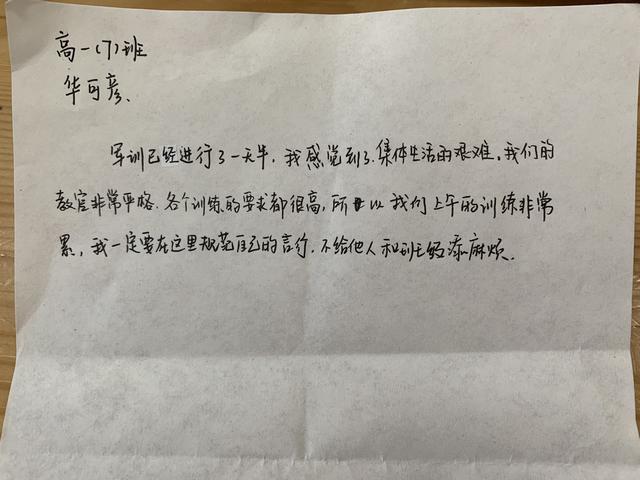 高一(7)班
华可彦、
军训已经进行了一天半，我感觉到了集体生活的艰难。我们的
教官非常严格，各个训练的要求都很高，所以我们上午的训练非常
累，我一定要在这里规范自己的言行，不给他人和班级添麻烦。